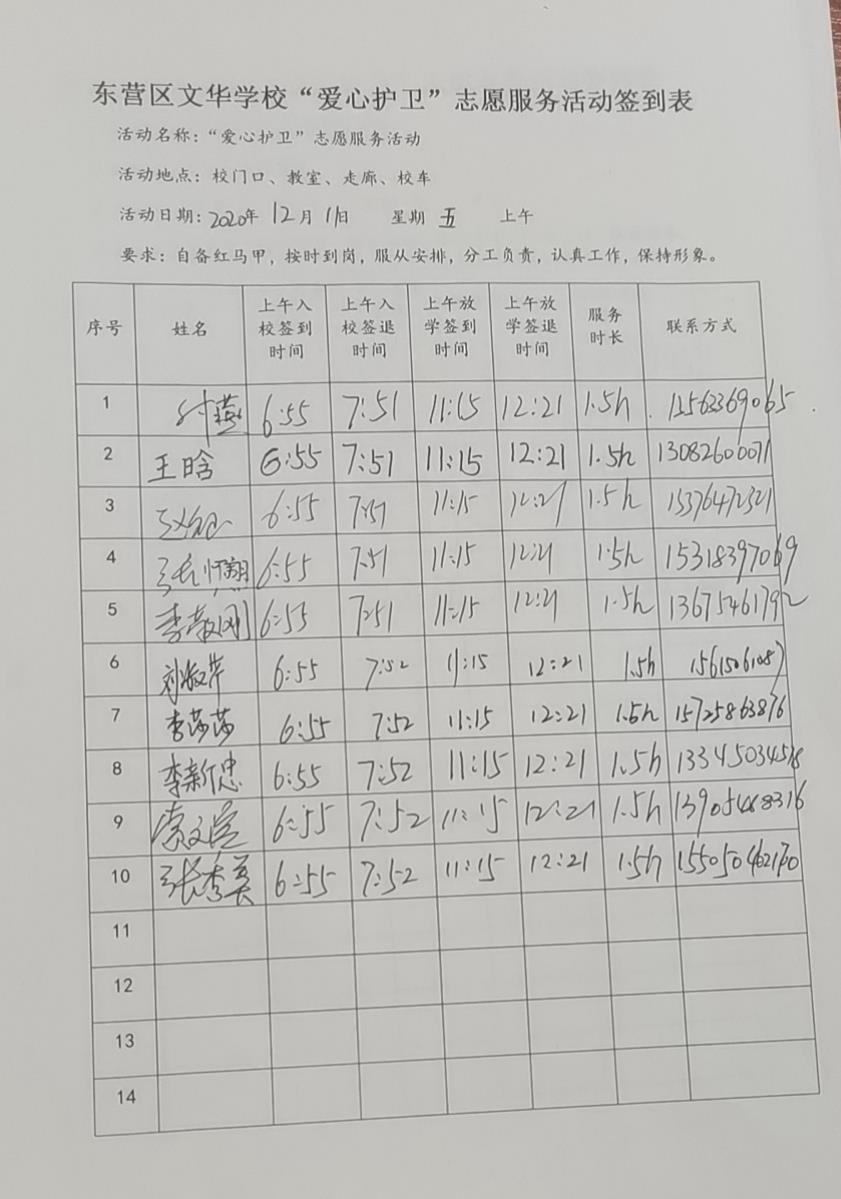 东营区文华学校“爱心护卫”志愿服务活动签到表
活动名称：“爱心护卫”志愿服务活动
活动地点：校门口、教室、走廊、校车
活动日期：2020年 12月 11日 星期 五 上午
要求：自备红马甲，按时到岗，服从安排，分工负责，认真工作，保持形象。
序号 姓名 上午入校签到时间 上午入校签退时间 上午放学签到时间 上午放学签退时间 服务时长 联系方式
1 付燕 6:55 7:51 11:15 12:21 1.5h
2 王晗 6:55 7:51 11:15 12:21 1.5h 13082600071
3 6:55 7:51 11:15 12:21 1.5h 15376472321
4 6:55 7:51 11:15 12:21 1.5h 15318397069
5 李敬刚 6:55 7:51 11:15 12:21 1.5h 13675461792
6 刘淑芹 6:55 7:52 11:15 12:21 1.5h 15615061087
7 李莎莎 6:55 7:52 11:15 12:21 1.5h 15725863876
8 李新忠 6:55 7:52 11:15 12:21 1.5h
9 6:55 7:52 11:15 12:21 1.5h 13905468316
10 张秀美 6:55 7:52 11:15 12:21 1.5h
11
12
13
14